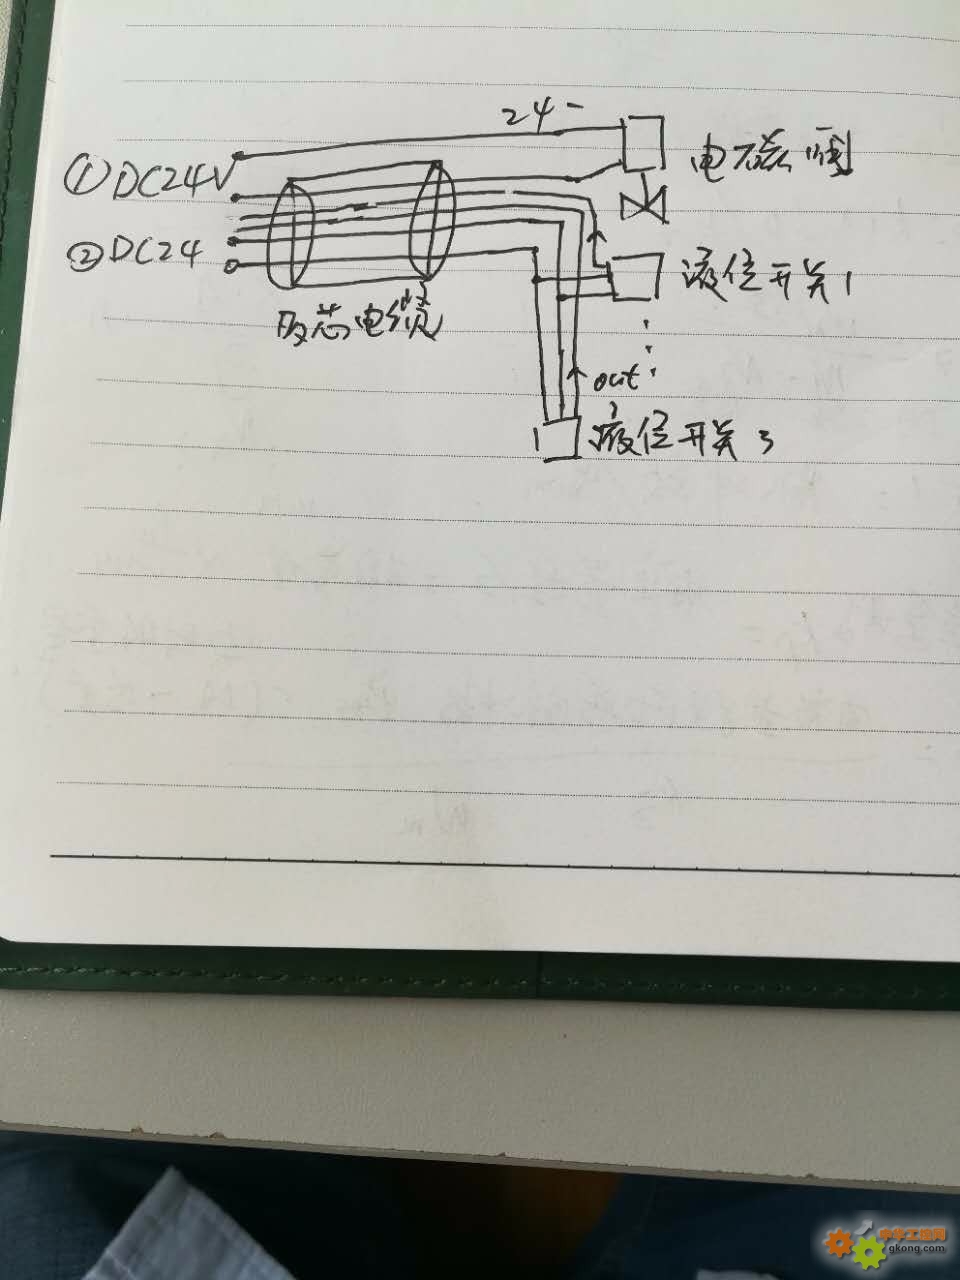 24-
①DC24V
电磁阀
②DC24
液位开关1
芯电缆
out
液位开关3
中华工控网
gkong.com